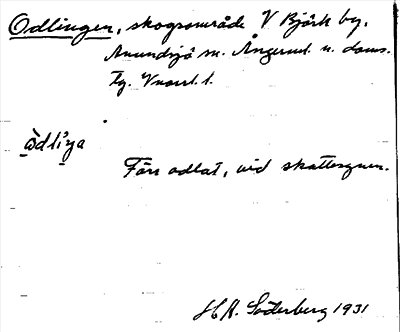 Odlingen, skogsområde V Björk by,
Anundsjö sn. Ångerml. n. doms.
tg. Vnorrl. l.
Förr odlat, vid skattegruen.
H.A. Söderberg 1931